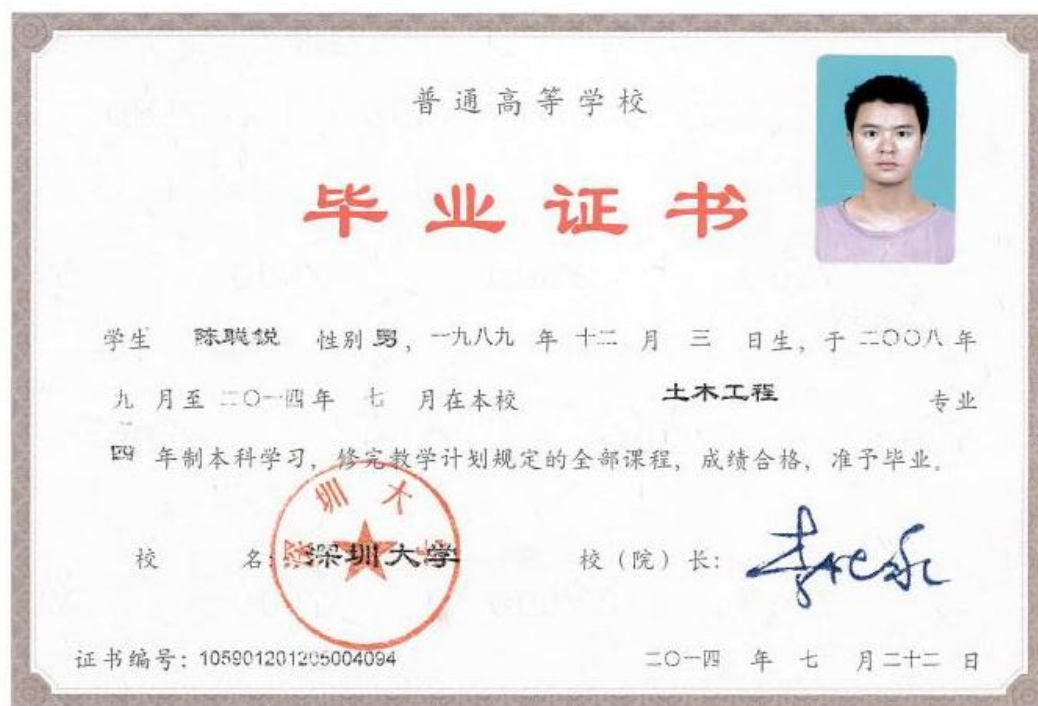 普通高等学校
毕业证书
学生 陈聪悦 性别 男，一九八九 年 十二 月 三 日生，于 二〇〇八 年
九 月至 二〇一四 年 七 月在本校 土木工程 专业
四 年制本科学习，修完教学计划规定的全部课程，成绩合格，准予毕业。
校 名：深圳大学 校（院）长：
深圳大学
证书编号：105901201205004094 二〇一四 年 七 月二十二 日